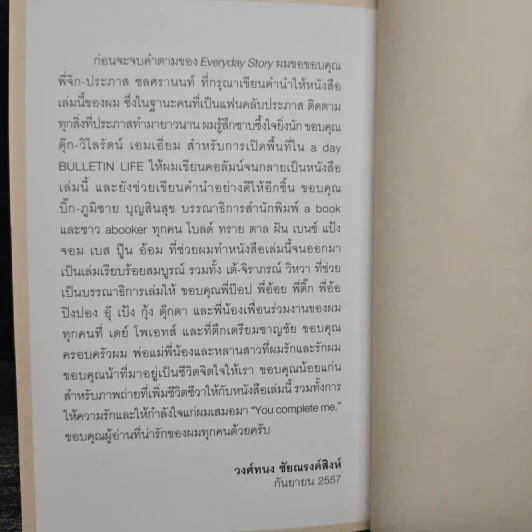 ก่อนจะจบคำตามของ Everyday Story ผมขอขอบคุณ
พี่จิก-ประภาส ชลศรานนท์ ที่กรุณาเขียนคำนำให้หนังสือ
เล่มนี้ของผม ซึ่งในฐานะคนที่เป็นแฟนคลับประภาส ติดตาม
ทุกสิ่งที่ประภาสทำมายาวนาน ผมรู้สึกซาบซึ้งใจยิ่งนัก ขอบคุณ
ตุ๊ก-วิไลรัตน์ เอมเอี่ยม สำหรับการเปิดพื้นที่ใน a day
BULLETIN LIFE ให้ผมเขียนคอลัมน์จนกลายเป็นหนังสือ
เล่มนี้ และยังช่วยเขียนคำนำอย่างดีให้อีกชิ้น ขอบคุณ
บิ๊ก-ภูมิชาย บุญสินสุข บรรณาธิการสำนักพิมพ์ a book
และชาว abooker ทุกคน โบลต์ ทราย ตาล ฝัน เบนซ์ แป้ง
จอม เบส ปู๊น อ้อม ที่ช่วยผมทำหนังสือเล่มนี้จนออกมา
เป็นเล่มเรียบร้อยสมบูรณ์ รวมทั้ง เต้-จิราภรณ์ วิหวา ที่ช่วย
เป็นบรรณาธิการเล่มให้ ขอบคุณพี่ป๊อป พี่อ้อย พี่ติ๊ก พี่อ้อ
ปิงปอง อุ๊ เป้ง กุ้ง ตุ๊กตา และพี่น้องเพื่อนร่วมงานของผม
ทุกคนที่ เดย์ โพเอทส์ และที่ตึกเตรียมชาญชัย ขอบคุณ
ครอบครัวผม พ่อแม่พี่น้องและหลานสาวที่ผมรักและรักผม
ขอบคุณน้าที่มาอยู่เป็นชีวิตจิตใจให้เรา ขอบคุณน้อยแก่น
สำหรับภาพถ่ายที่เพิ่มชีวิตชีวาให้กับหนังสือเล่มนี้ รวมทั้งการ
ให้ความรักและให้กำลังใจแก่ผมเสมอมา "You complete me."
ขอบคุณผู้อ่านที่น่ารักของผมทุกคนด้วยครับ
วงศ์ทนง ชัยณรงค์สิงห์
กันยายน 2557